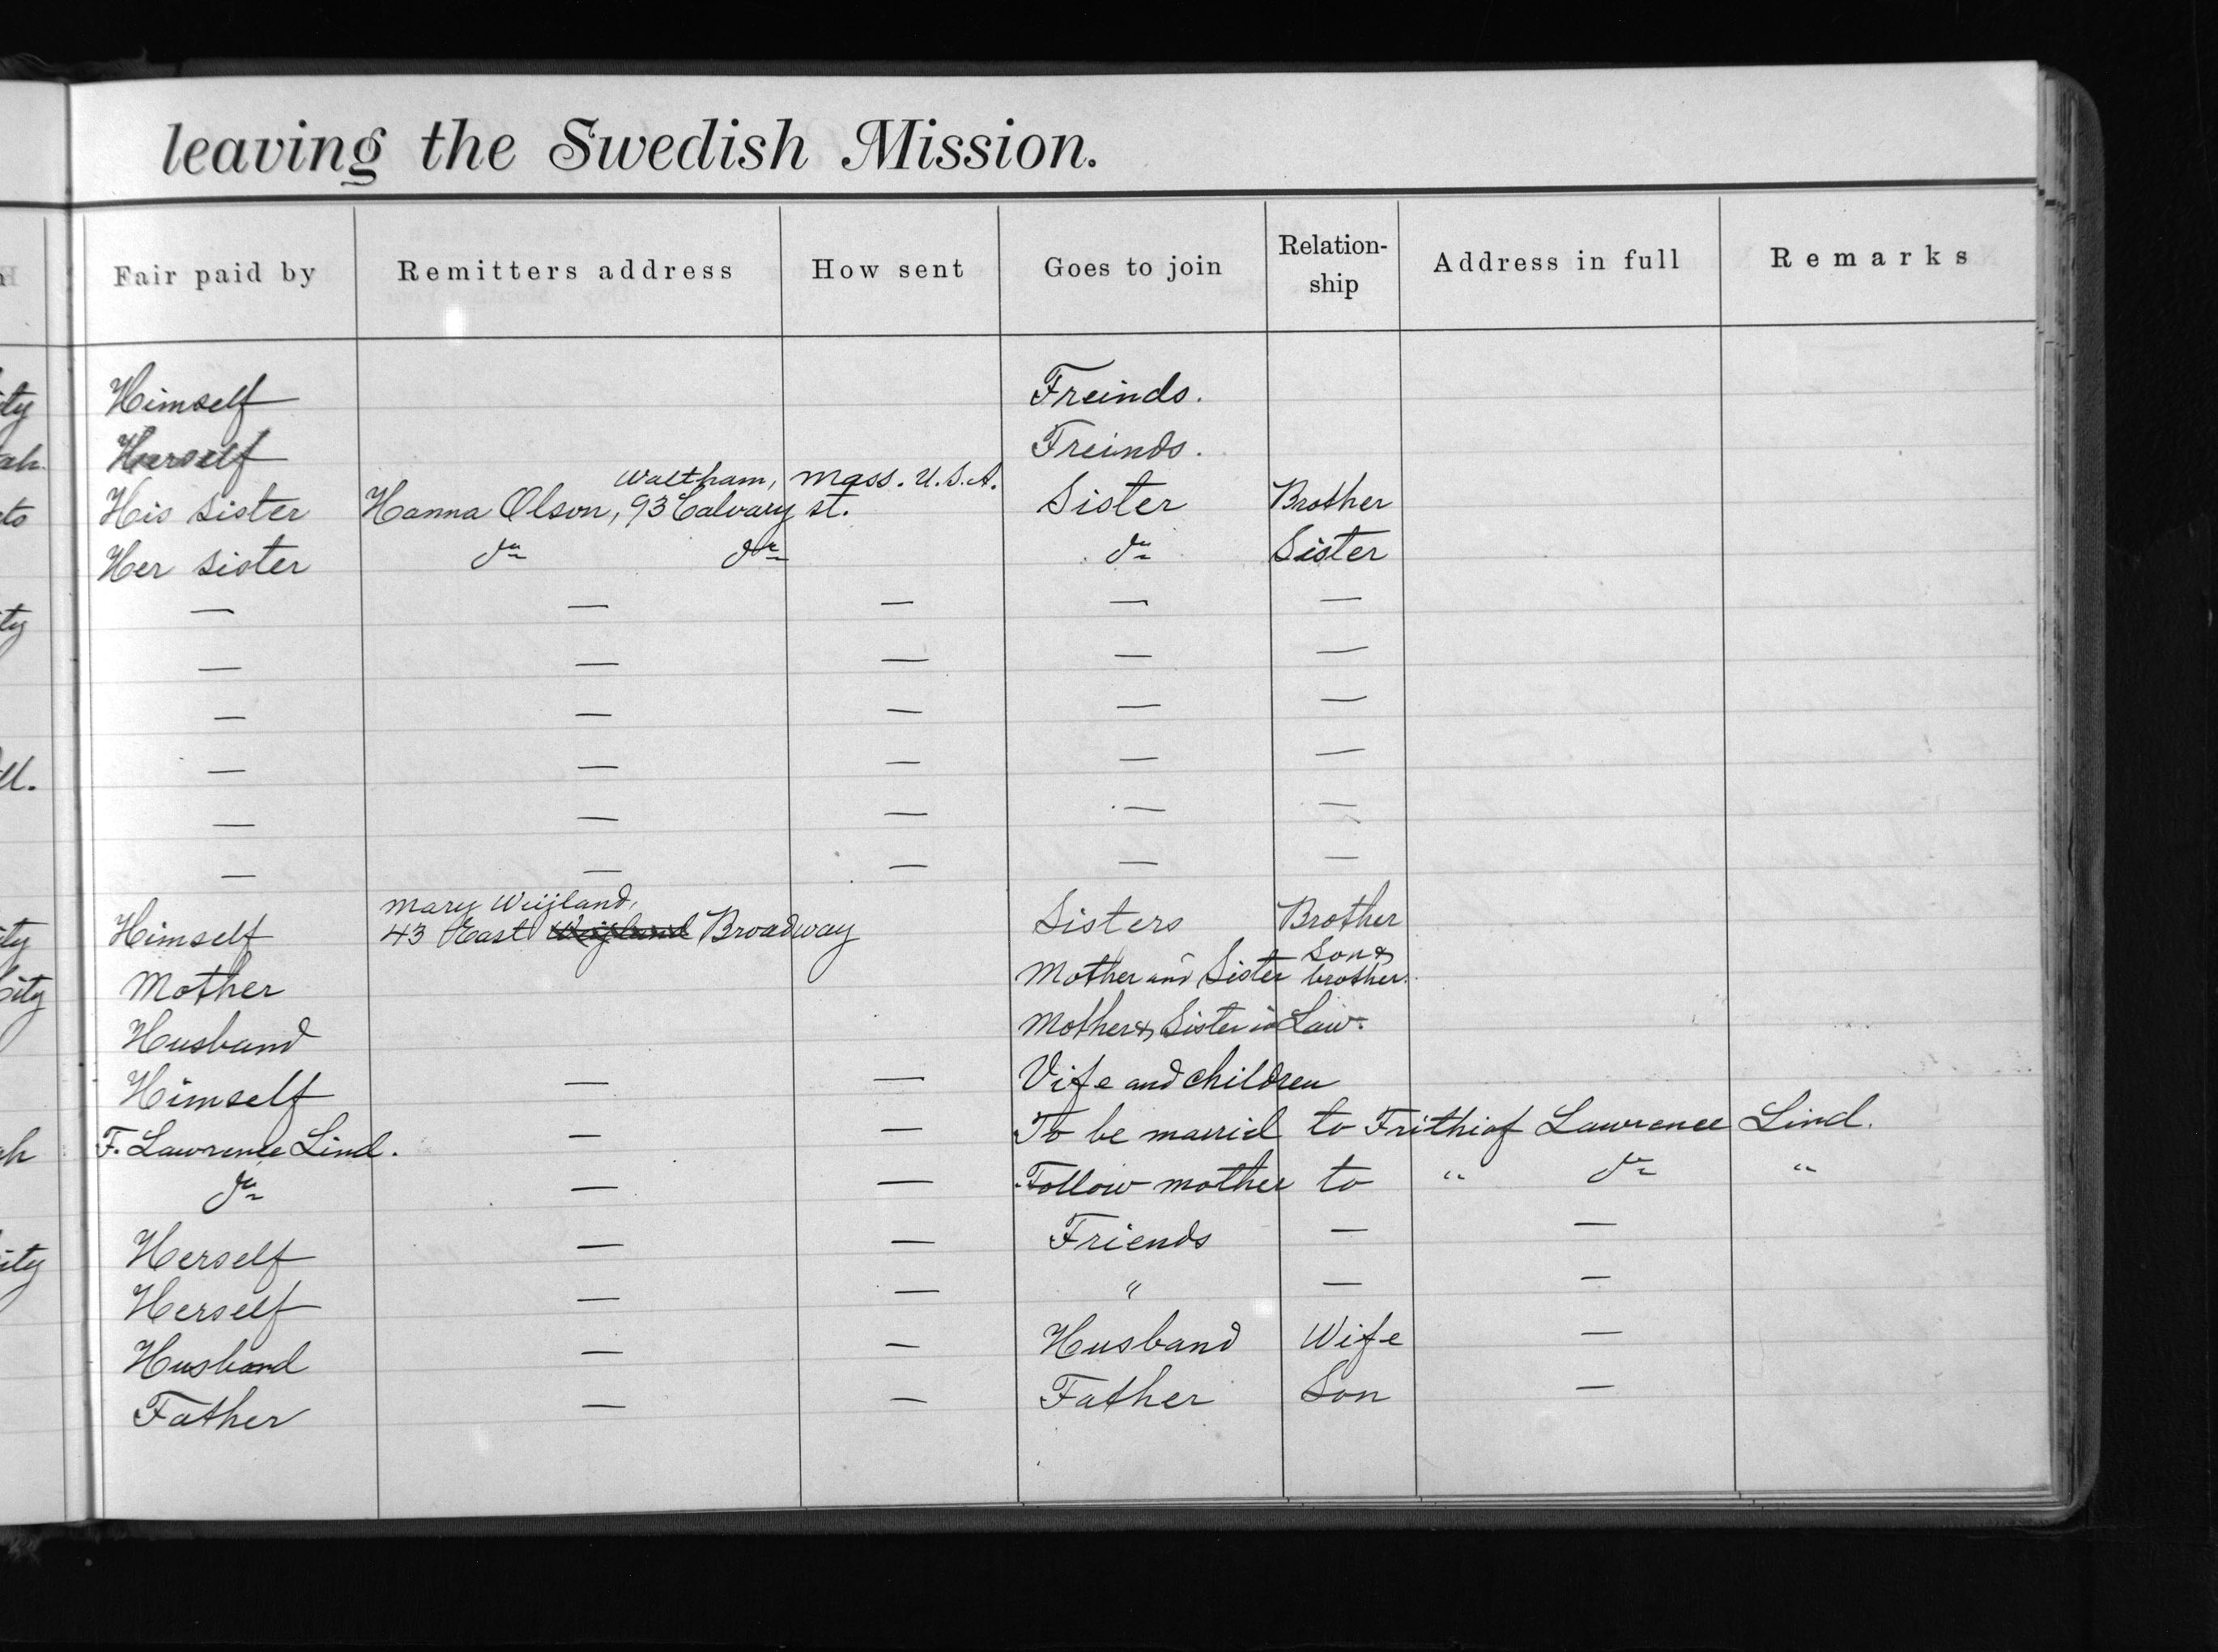 leaving the Swedish Mission.
Fair paid by Remitters address How sent Goes to join Relation-ship Address in full Remarks
ity Himself Freinds.
ah. Herself Freinds.
Waltham, Mass. U.S.A.
to His sister Hanna Olson, 93 Calvary st. Sister Brother
Her sister do do do Sister
ity — — — — —
— — — — —
— — — — —
ll. — — — — —
— — — — —
— — — — —
Mary Weijland,
ity Himself 43 East Broadway Sisters Brother
City Mother Mother and Sister Son & brother.
Husband Mother & Sister in Law.
Himself — — Vife and children
ah F. Lawrence Lind. — — To be marrid to Frithiof Lawrence Lind.
do — — Follow mother to " do "
ity Herself — — Friends — —
Herself — — " — —
Husband — — Husband Wife —
Father — — Father Son —